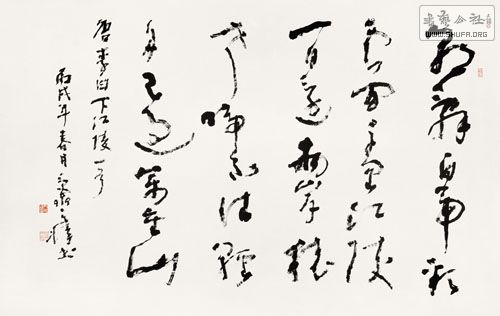 書藝公社
WWW.SHUFA.ORG
朝辭白帝彩
雲間千里江陵
一日還兩岸猿
聲啼不住輕
舟已過萬重山
唐李白下江陵一首
丙戌年春月